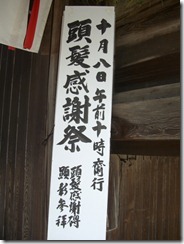 十月八日午前十時斎行
頭髪感謝祭
頭髪感謝碑